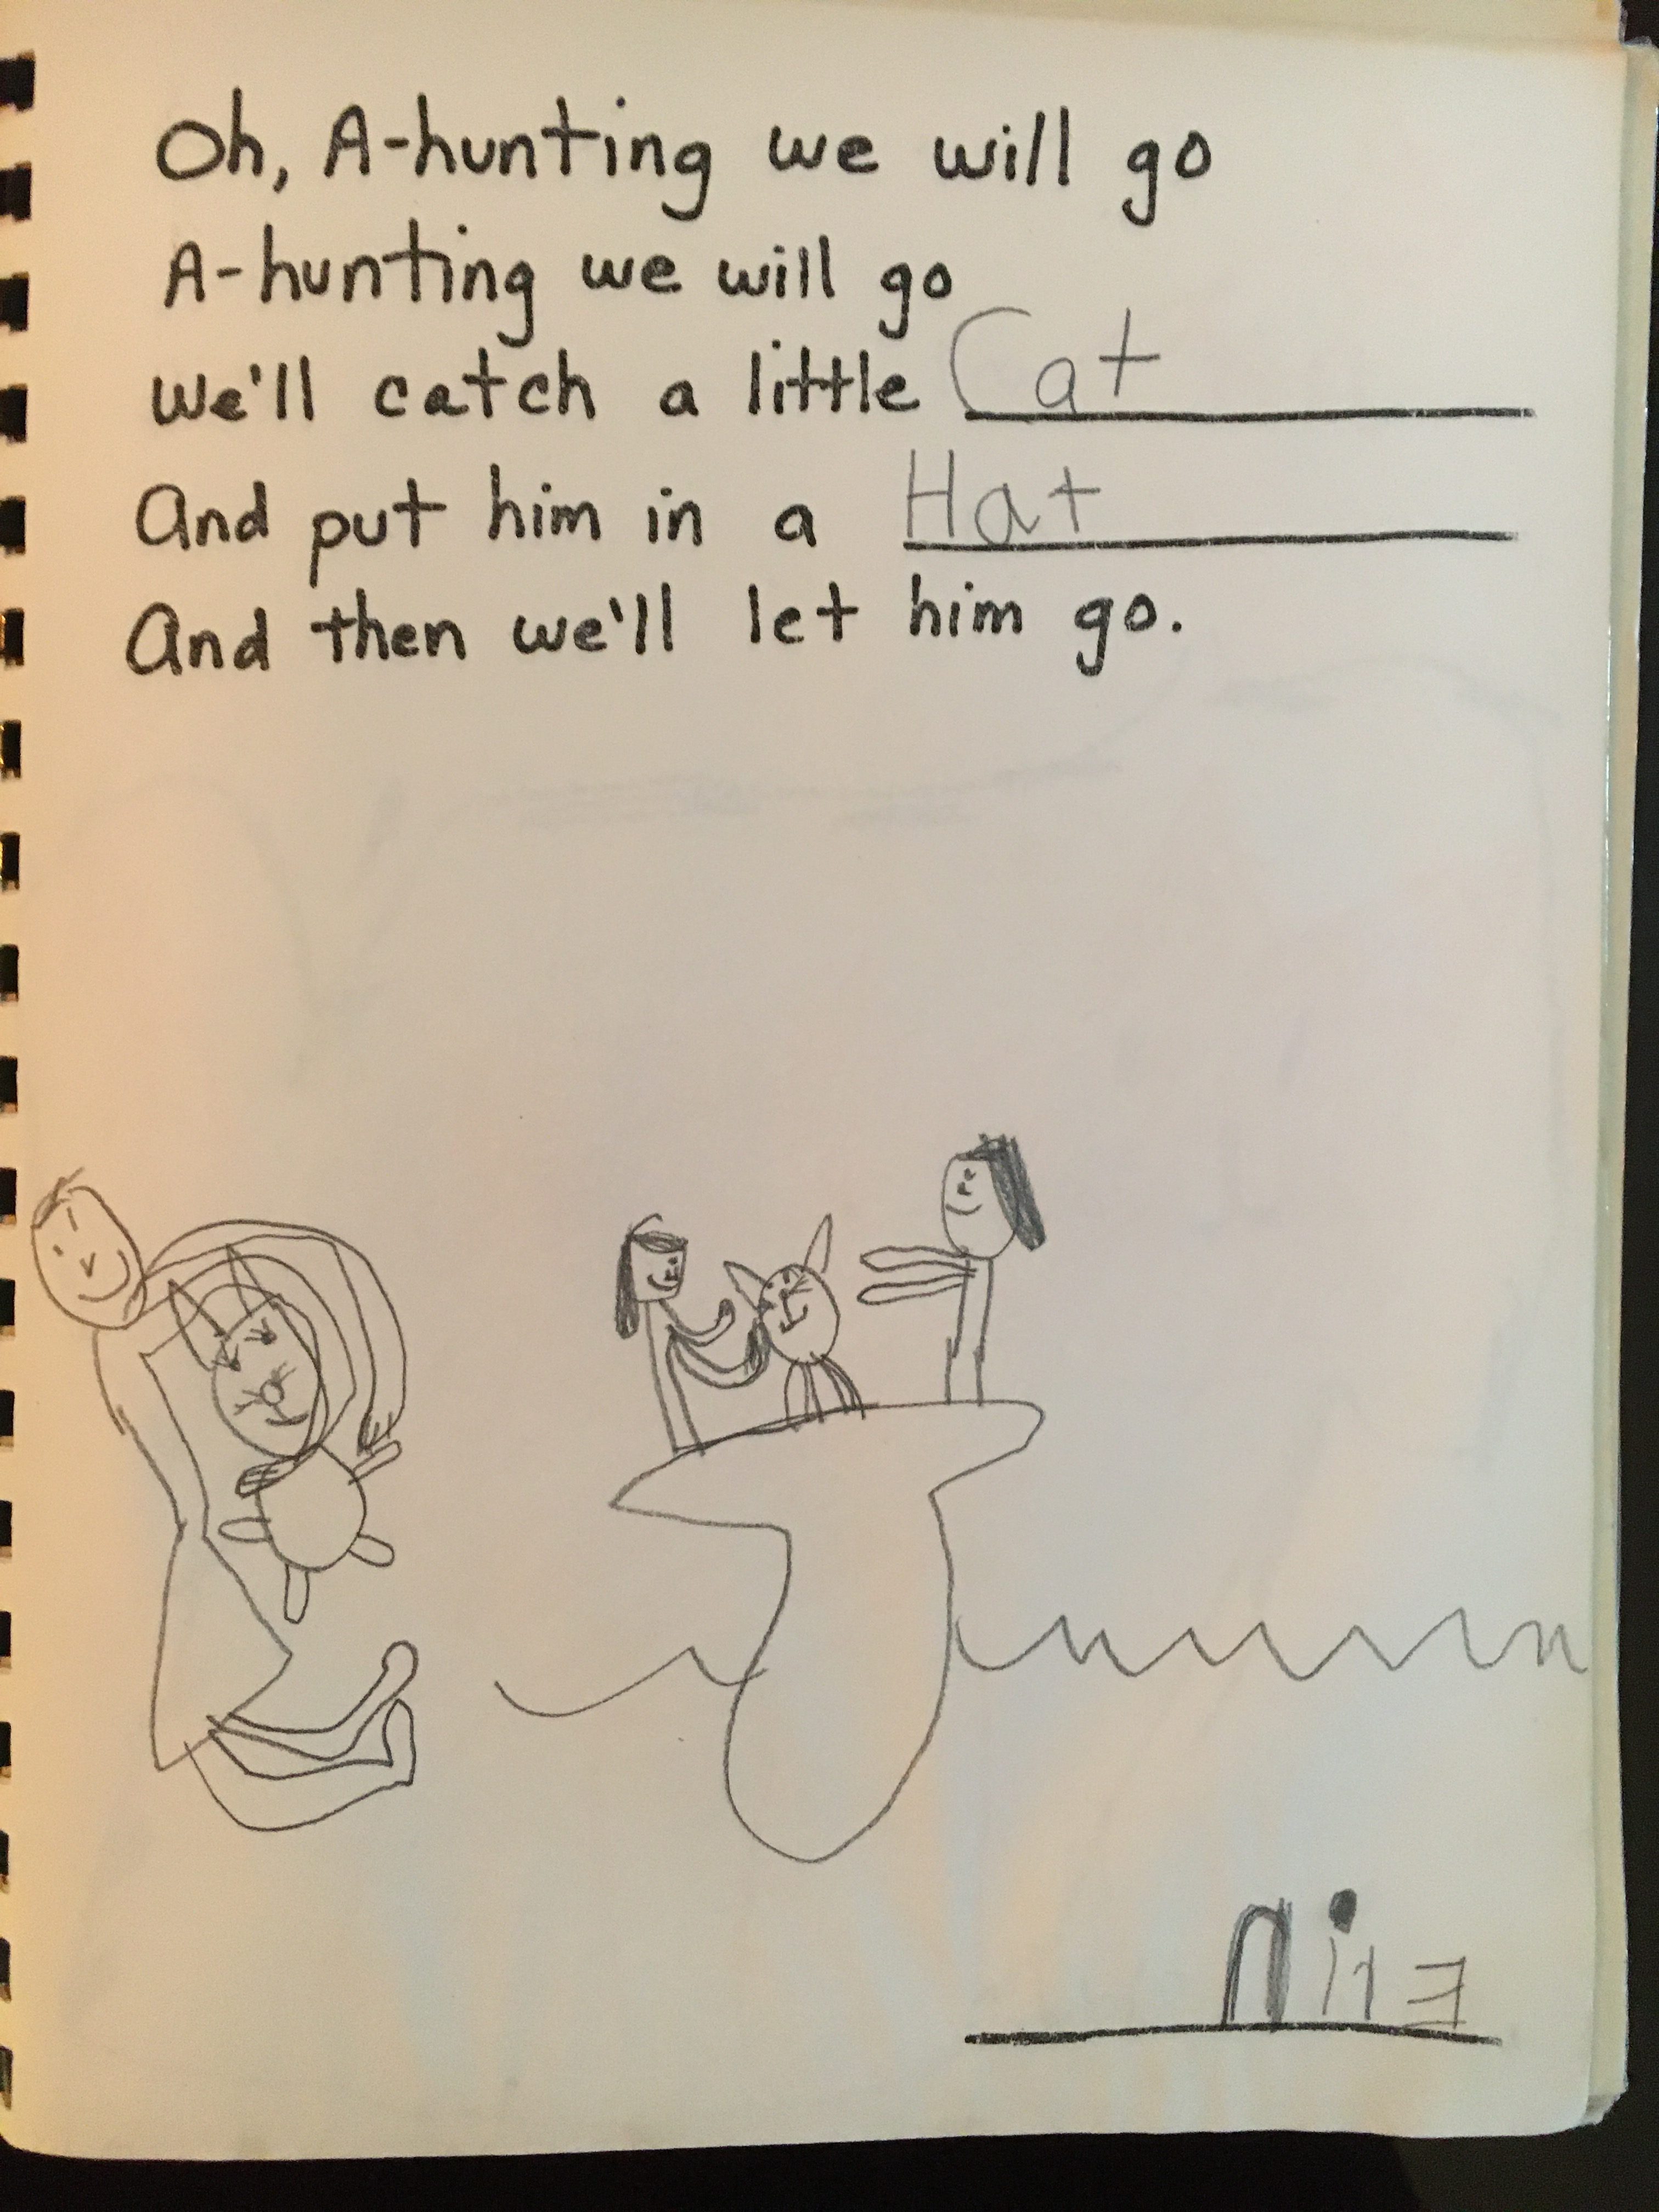 Oh, A-hunting we will go
A-hunting we will go
We'll catch a little Cat
And put him in a Hat
And then we'll let him go.
Erin